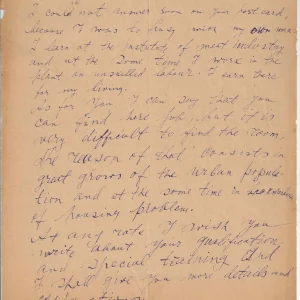 I could not answer soon on your postcard,
because I was to busy with my own work
I lern at the institute of meat industry
and at the some time I work in the
plant an unskilled labour. I earn here
for my living.
As for Van I can say that you
can find here job, but it is
very difficult to find the room.
The reason of that consists in
great grows of the urban popula-
tion and at the some time in
of housing problem.
At any rate I wish you
write about your qualification
and special training and
I shall give you more details and